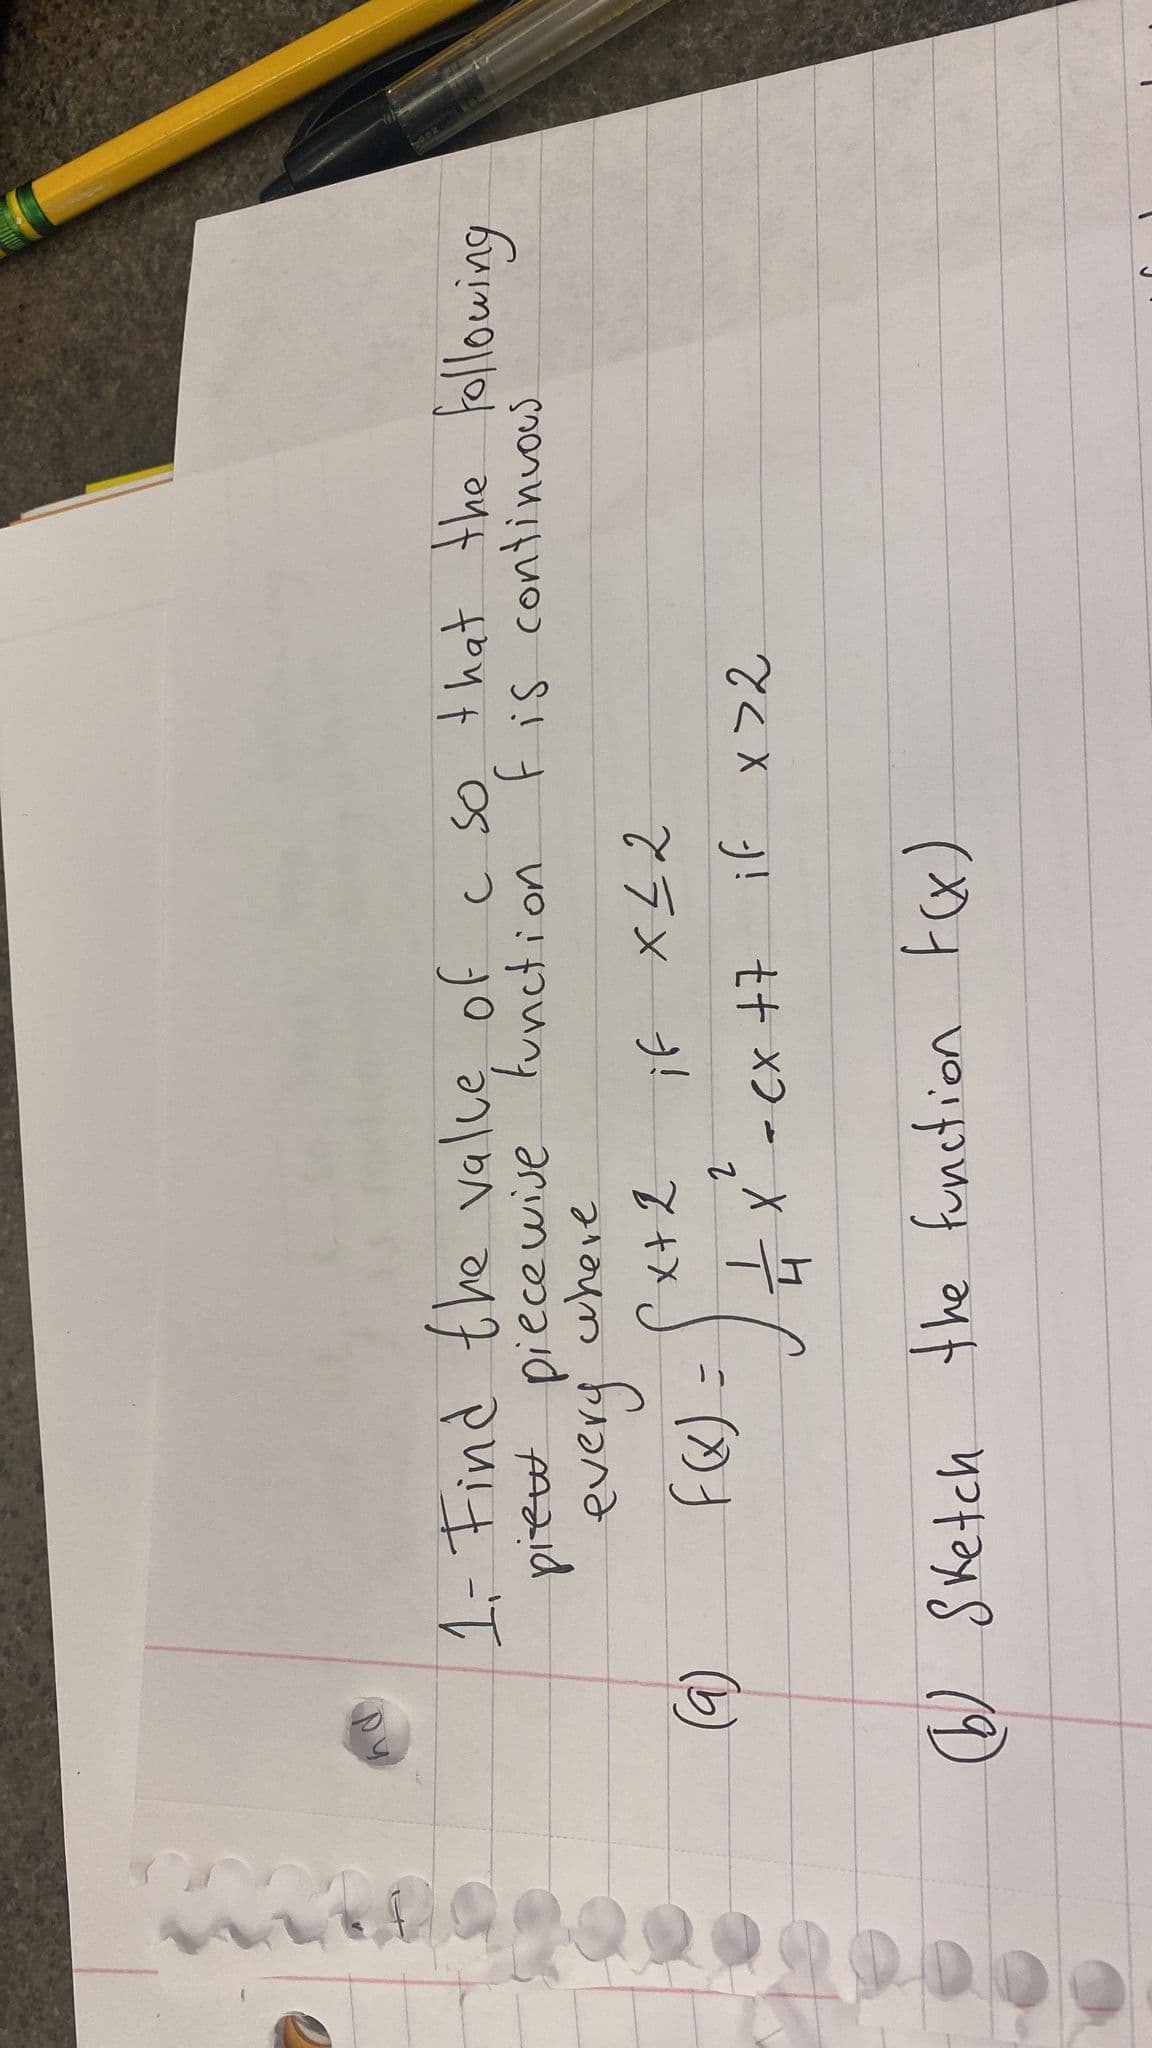 1.- Find the value of c so that the following
piecewise function f is continuous
every where
(a) f(x) = { x+2 if x ≤ 2
1/4 x² - cx +7 if x >2
(b) Sketch the function f(x)